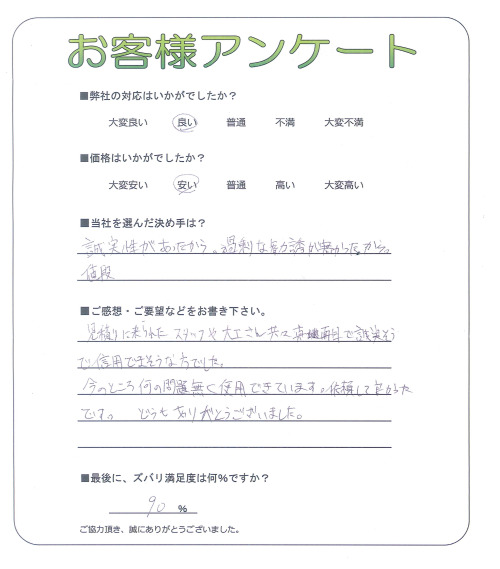 お客様アンケート
■弊社の対応はいかがでしたか？
大変良い 良い 普通 不満 大変不満
■価格はいかがでしたか？
大変安い 安い 普通 高い 大変高い
■当社を選んだ決め手は？
誠実性があったから。過剰な勧誘が無かったから。
値段
■ご感想・ご要望などをお書き下さい。
見積りに来られたスタッフや大工さん共に真面目で誠実そう
で信用できそうな方でした。
今のところ何の問題無く使用できています。依頼して良かった
です。 どうもありがとうございました。
■最後に、ズバリ満足度は何％ですか？
90 ％
ご協力頂き、誠にありがとうございました。